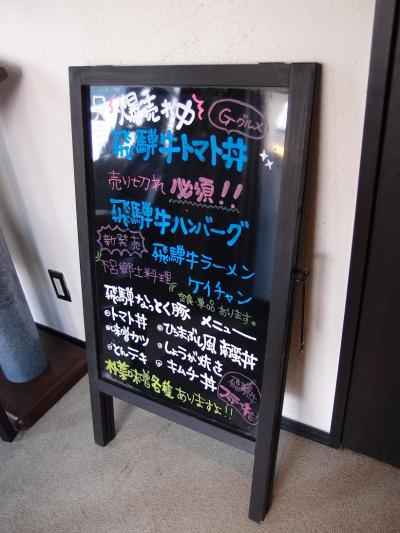 爆売れ中
Gーグルメ
飛騨牛トマト丼
売り切れ必須!!
飛騨牛ハンバーグ
新発売
飛騨牛ラーメン
下呂郷土料理
ケイチャン
定食・単品あります
飛騨なっとく豚 メニュー
トマト丼
ひまぶし風南蛮丼
味噌カツ
しょうが焼き
とんテキ
キムチ丼
朴葉味噌各種ありますよ!!